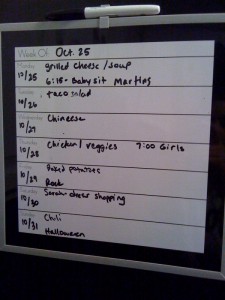 Week Of: Oct. 25
Monday grilled cheese/soup
10/25 6:15- Babysit Martins
Tuesday taco salad
10/26
Wednesday Chineese
10/27
Thursday Chicken/veggies 7:00 Girls
10/28
Friday Baked potatoes
10/29
Saturday Sarah-dress shopping
10/30
Sunday Chili
10/31 Halloween